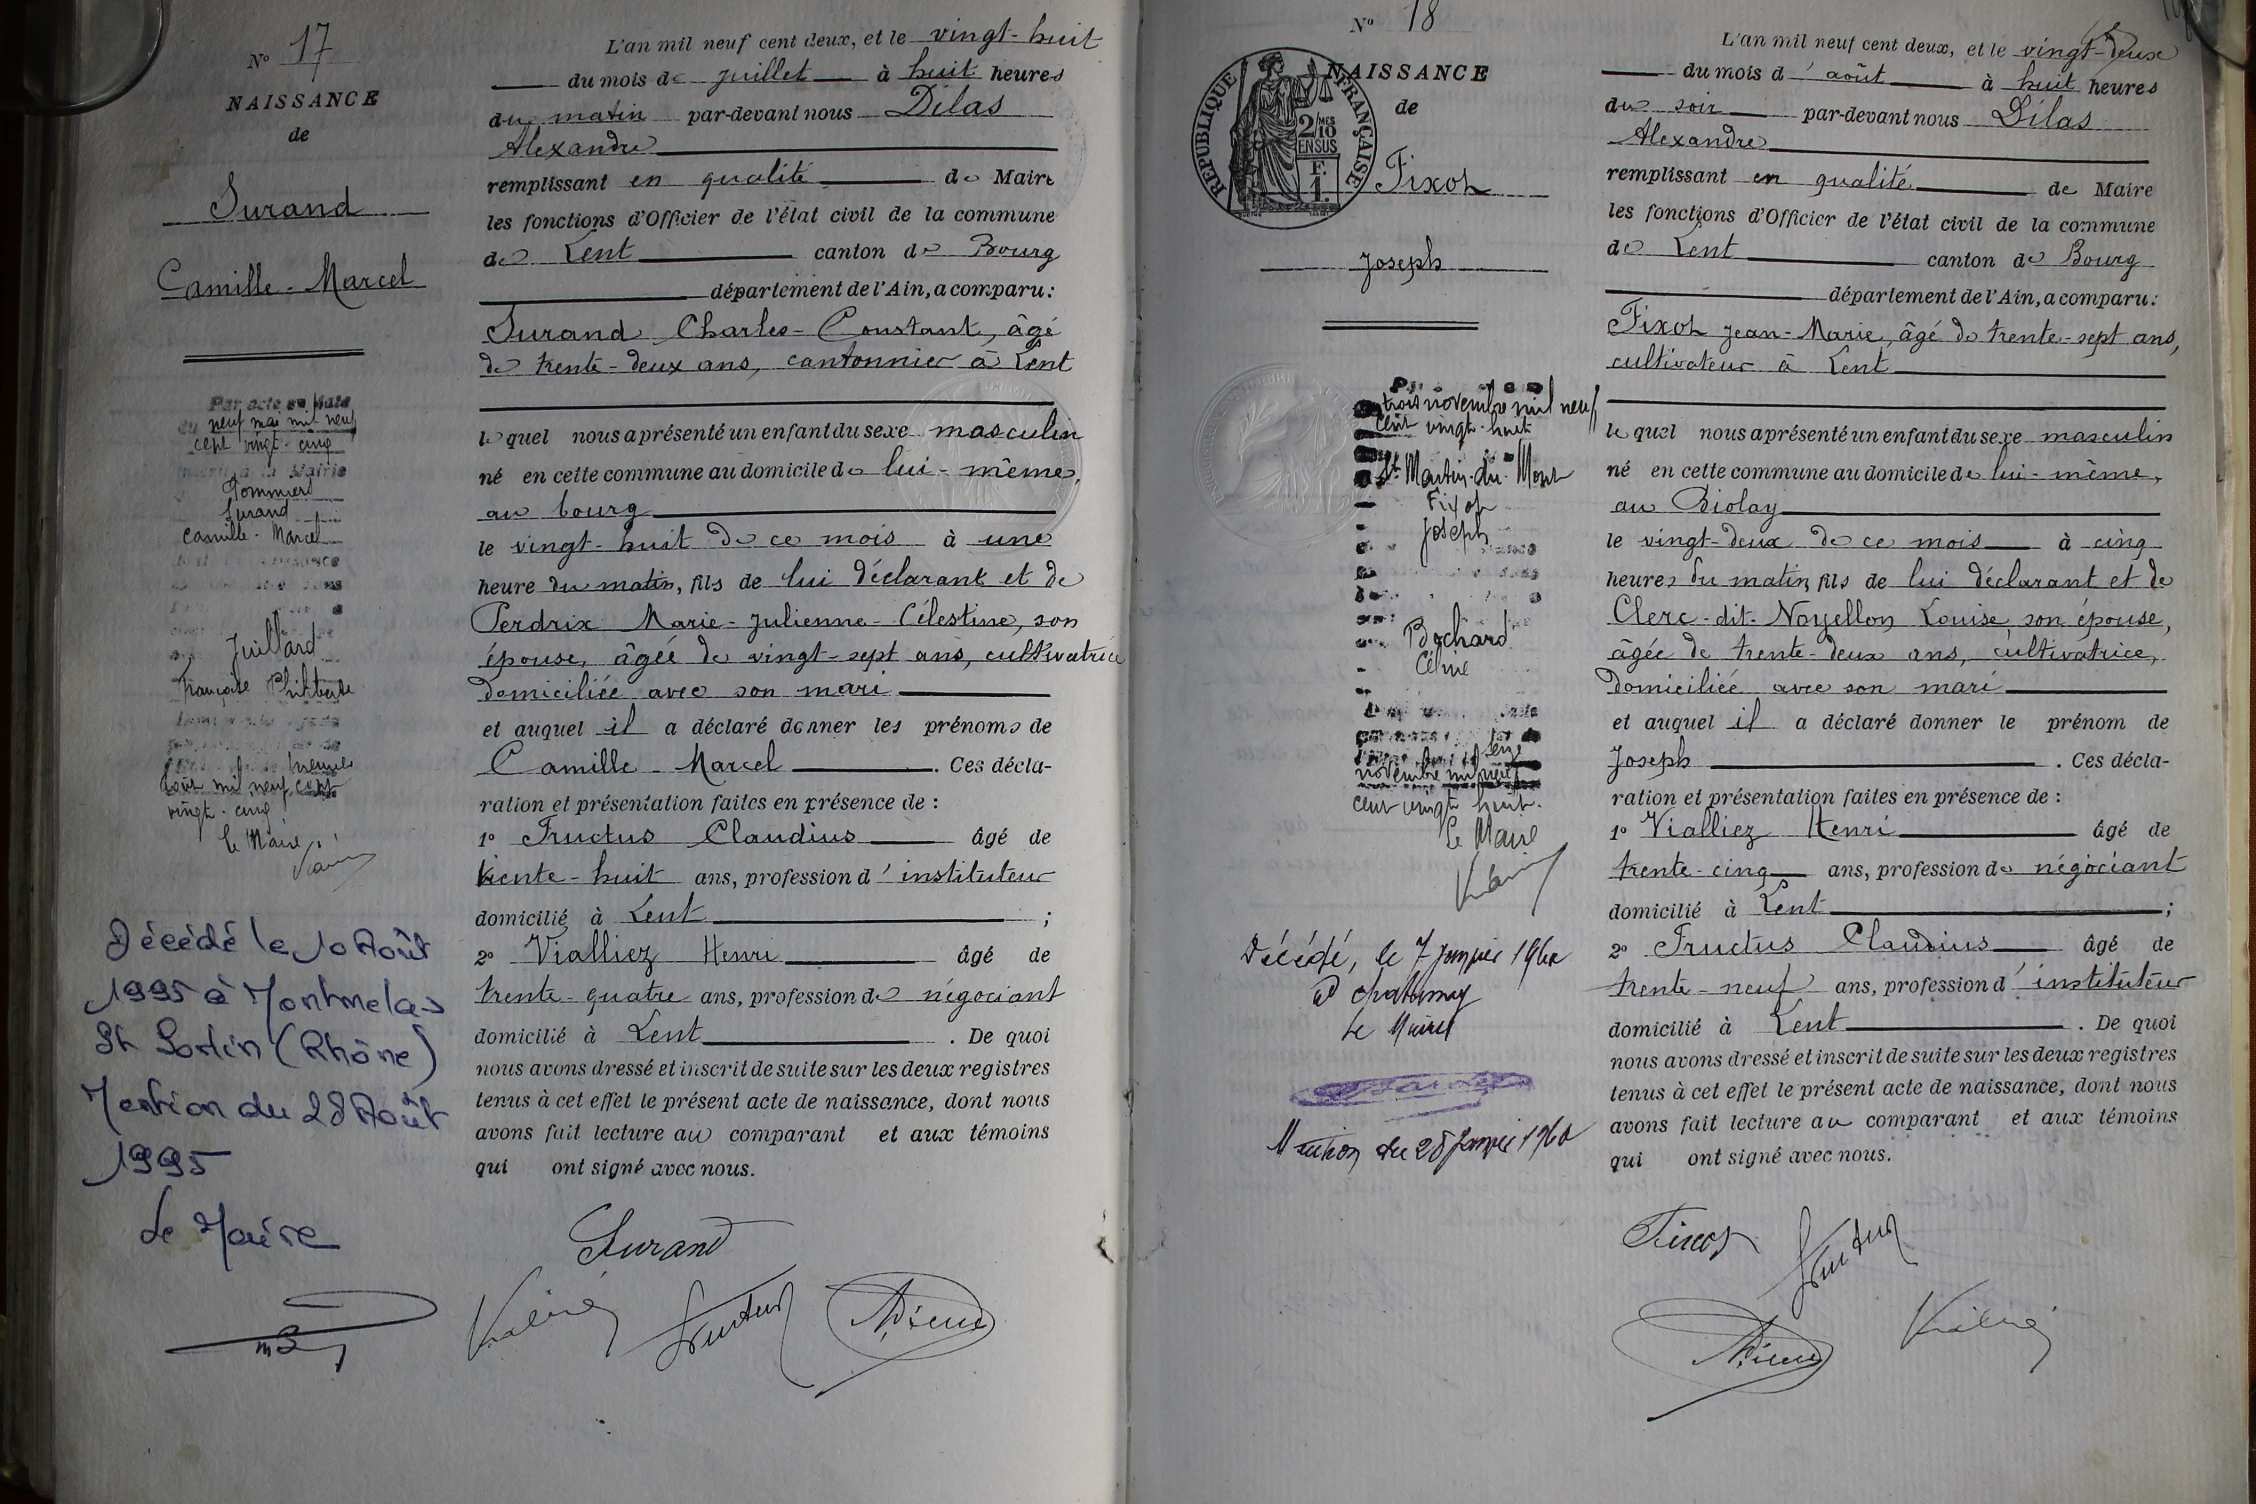 N° 17
NAISSANCE
de
Surand
Camille - Marcel
Par acte en date
du neuf mai mil neuf
cent vingt-cinq
Mairie
Pommiers
Surand
Camille - Marcel
Juillard
Françoise Philiberte
premier
août mil neuf cent
vingt-cinq
Le Maire
Décédé le 10 Août
1995 à Montmelas
St Sorlin (Rhône)
Mention du 28 Août
1995
Le Maire
L'an mil neuf cent deux, et le vingt-huit
du mois de juillet à huit heures
du matin par-devant nous Dilas
Alexandre
remplissant en qualité de Maire
les fonctions d'Officier de l'état civil de la commune
de Lent canton de Bourg
département de l'Ain, a comparu:
Surand Charles-Constant, âgé
de trente-deux ans, cantonnier à Lent
lequel nous a présenté un enfant du sexe masculin
né en cette commune au domicile de lui-même,
au bourg
le vingt-huit de ce mois à une
heure du matin, fils de lui déclarant et de
Perdrix Marie-Julienne-Célestine, son
épouse, âgée de vingt-sept ans, cultivatrice
domiciliée avec son mari
et auquel il a déclaré donner les prénoms de
Camille-Marcel. Ces décla-
ration et présentation faites en présence de :
1° Fructus Claudius âgé de
trente-huit ans, profession d'instituteur
domicilié à Lent ;
2° Vialliez Henri âgé de
trente-quatre ans, profession de négociant
domicilié à Lent. De quoi
nous avons dressé et inscrit de suite sur les deux registres
tenus à cet effet le présent acte de naissance, dont nous
avons fait lecture au comparant et aux témoins
qui ont signé avec nous.
Surand
Fructus
N° 18
NAISSANCE
de
RÉPUBLIQUE FRANÇAISE
2/10 MES
EN SUS
F.
1.
Fixot
Joseph
trois novembre mil neuf
cent vingt-huit
St Martin-du-Mont
Fixot
Joseph
Bochard
seize
novembre mil neuf
cent vingt huit.
Le Maire
Décédé, le 7 janvier 1960
Le Maire
Mention du 28 Janvier 1960
L'an mil neuf cent deux, et le vingt-deux
du mois d'août à huit heures
du soir par-devant nous Dilas
Alexandre
remplissant en qualité de Maire
les fonctions d'Officier de l'état civil de la commune
de Lent canton de Bourg
département de l'Ain, a comparu:
Fixot Jean-Marie, âgé de trente-sept ans,
cultivateur à Lent
lequel nous a présenté un enfant du sexe masculin
né en cette commune au domicile de lui-même,
au Biolay
le vingt-deux de ce mois à cinq
heures du matin, fils de lui déclarant et de
Clerc-dit-Noyellon Louise, son épouse,
âgée de trente-deux ans, cultivatrice,
domiciliée avec son mari
et auquel il a déclaré donner le prénom de
Joseph. Ces décla-
ration et présentation faites en présence de :
1° Vialliez Henri âgé de
trente-cinq ans, profession de négociant
domicilié à Lent ;
2° Fructus Claudius âgé de
trente-neuf ans, profession d'instituteur
domicilié à Lent. De quoi
nous avons dressé et inscrit de suite sur les deux registres
tenus à cet effet le présent acte de naissance, dont nous
avons fait lecture au comparant et aux témoins
qui ont signé avec nous.
Fixot
Fructus